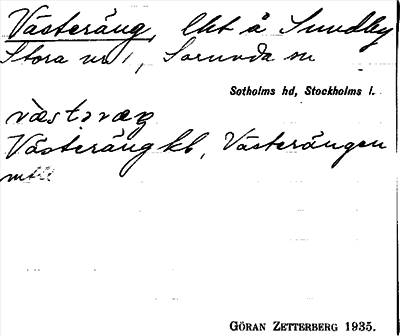 Västeräng, lht å Sundby
Stora nr 1, Sorunda sn
Sotholms hd, Stockholms l.
væstəræŋ
Västeräng kb, Västerängen
mtb
GÖRAN ZETTERBERG 1935.